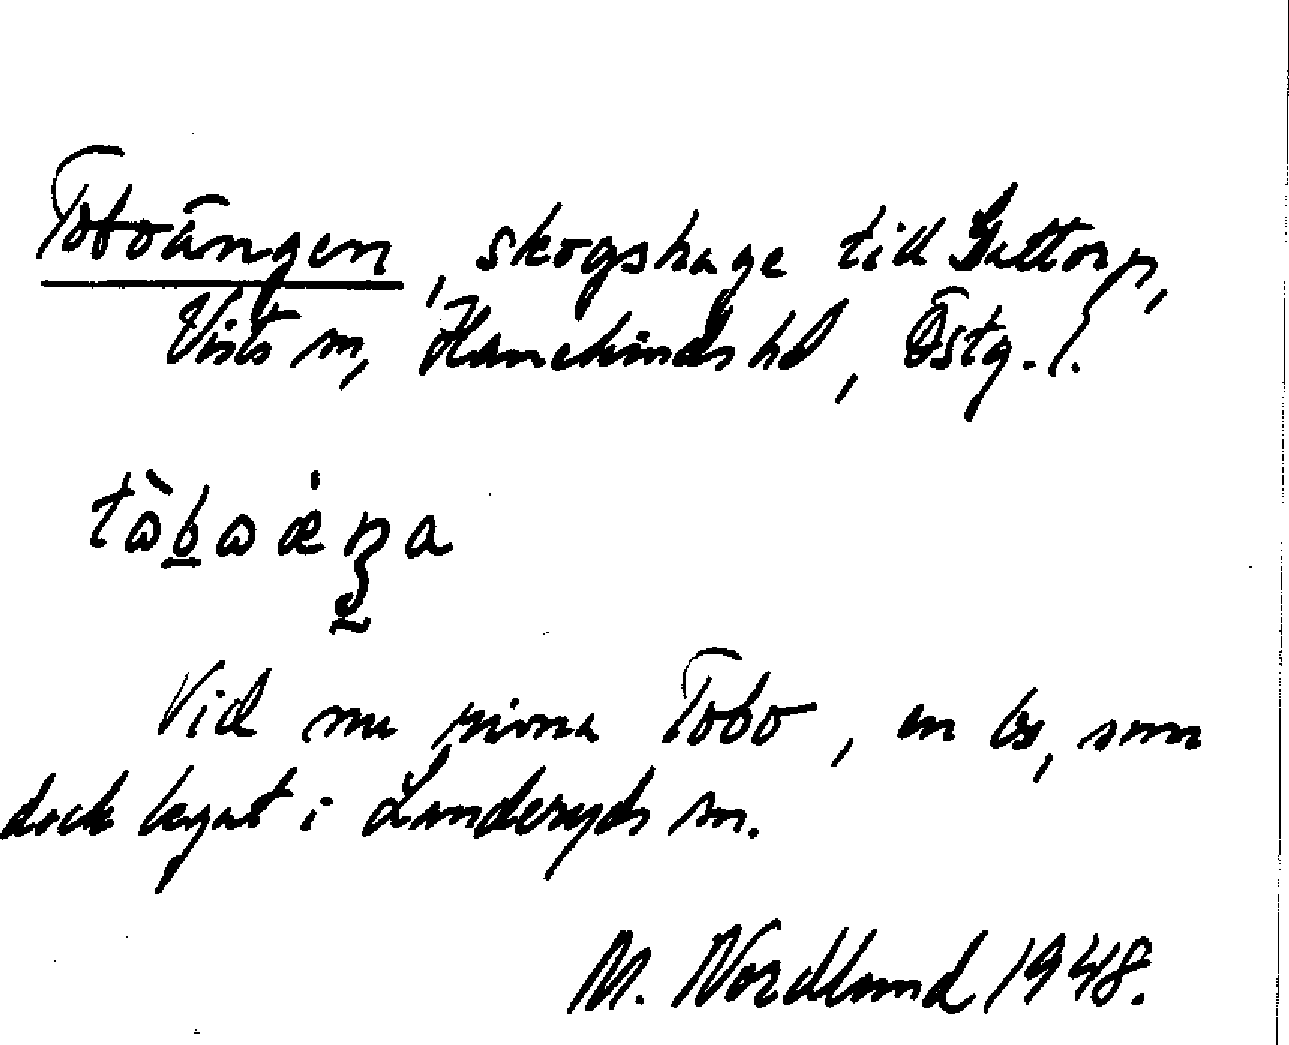 Toboängen, skogshage till Gittorp,
Vists sn, Hanekinds hd, Östg. l.
tò̀bωæ̀ŋa
Vid nu rivna Tobo, en bs, som
dock legat i Landeryds sn.
M. Nordlund 1948.